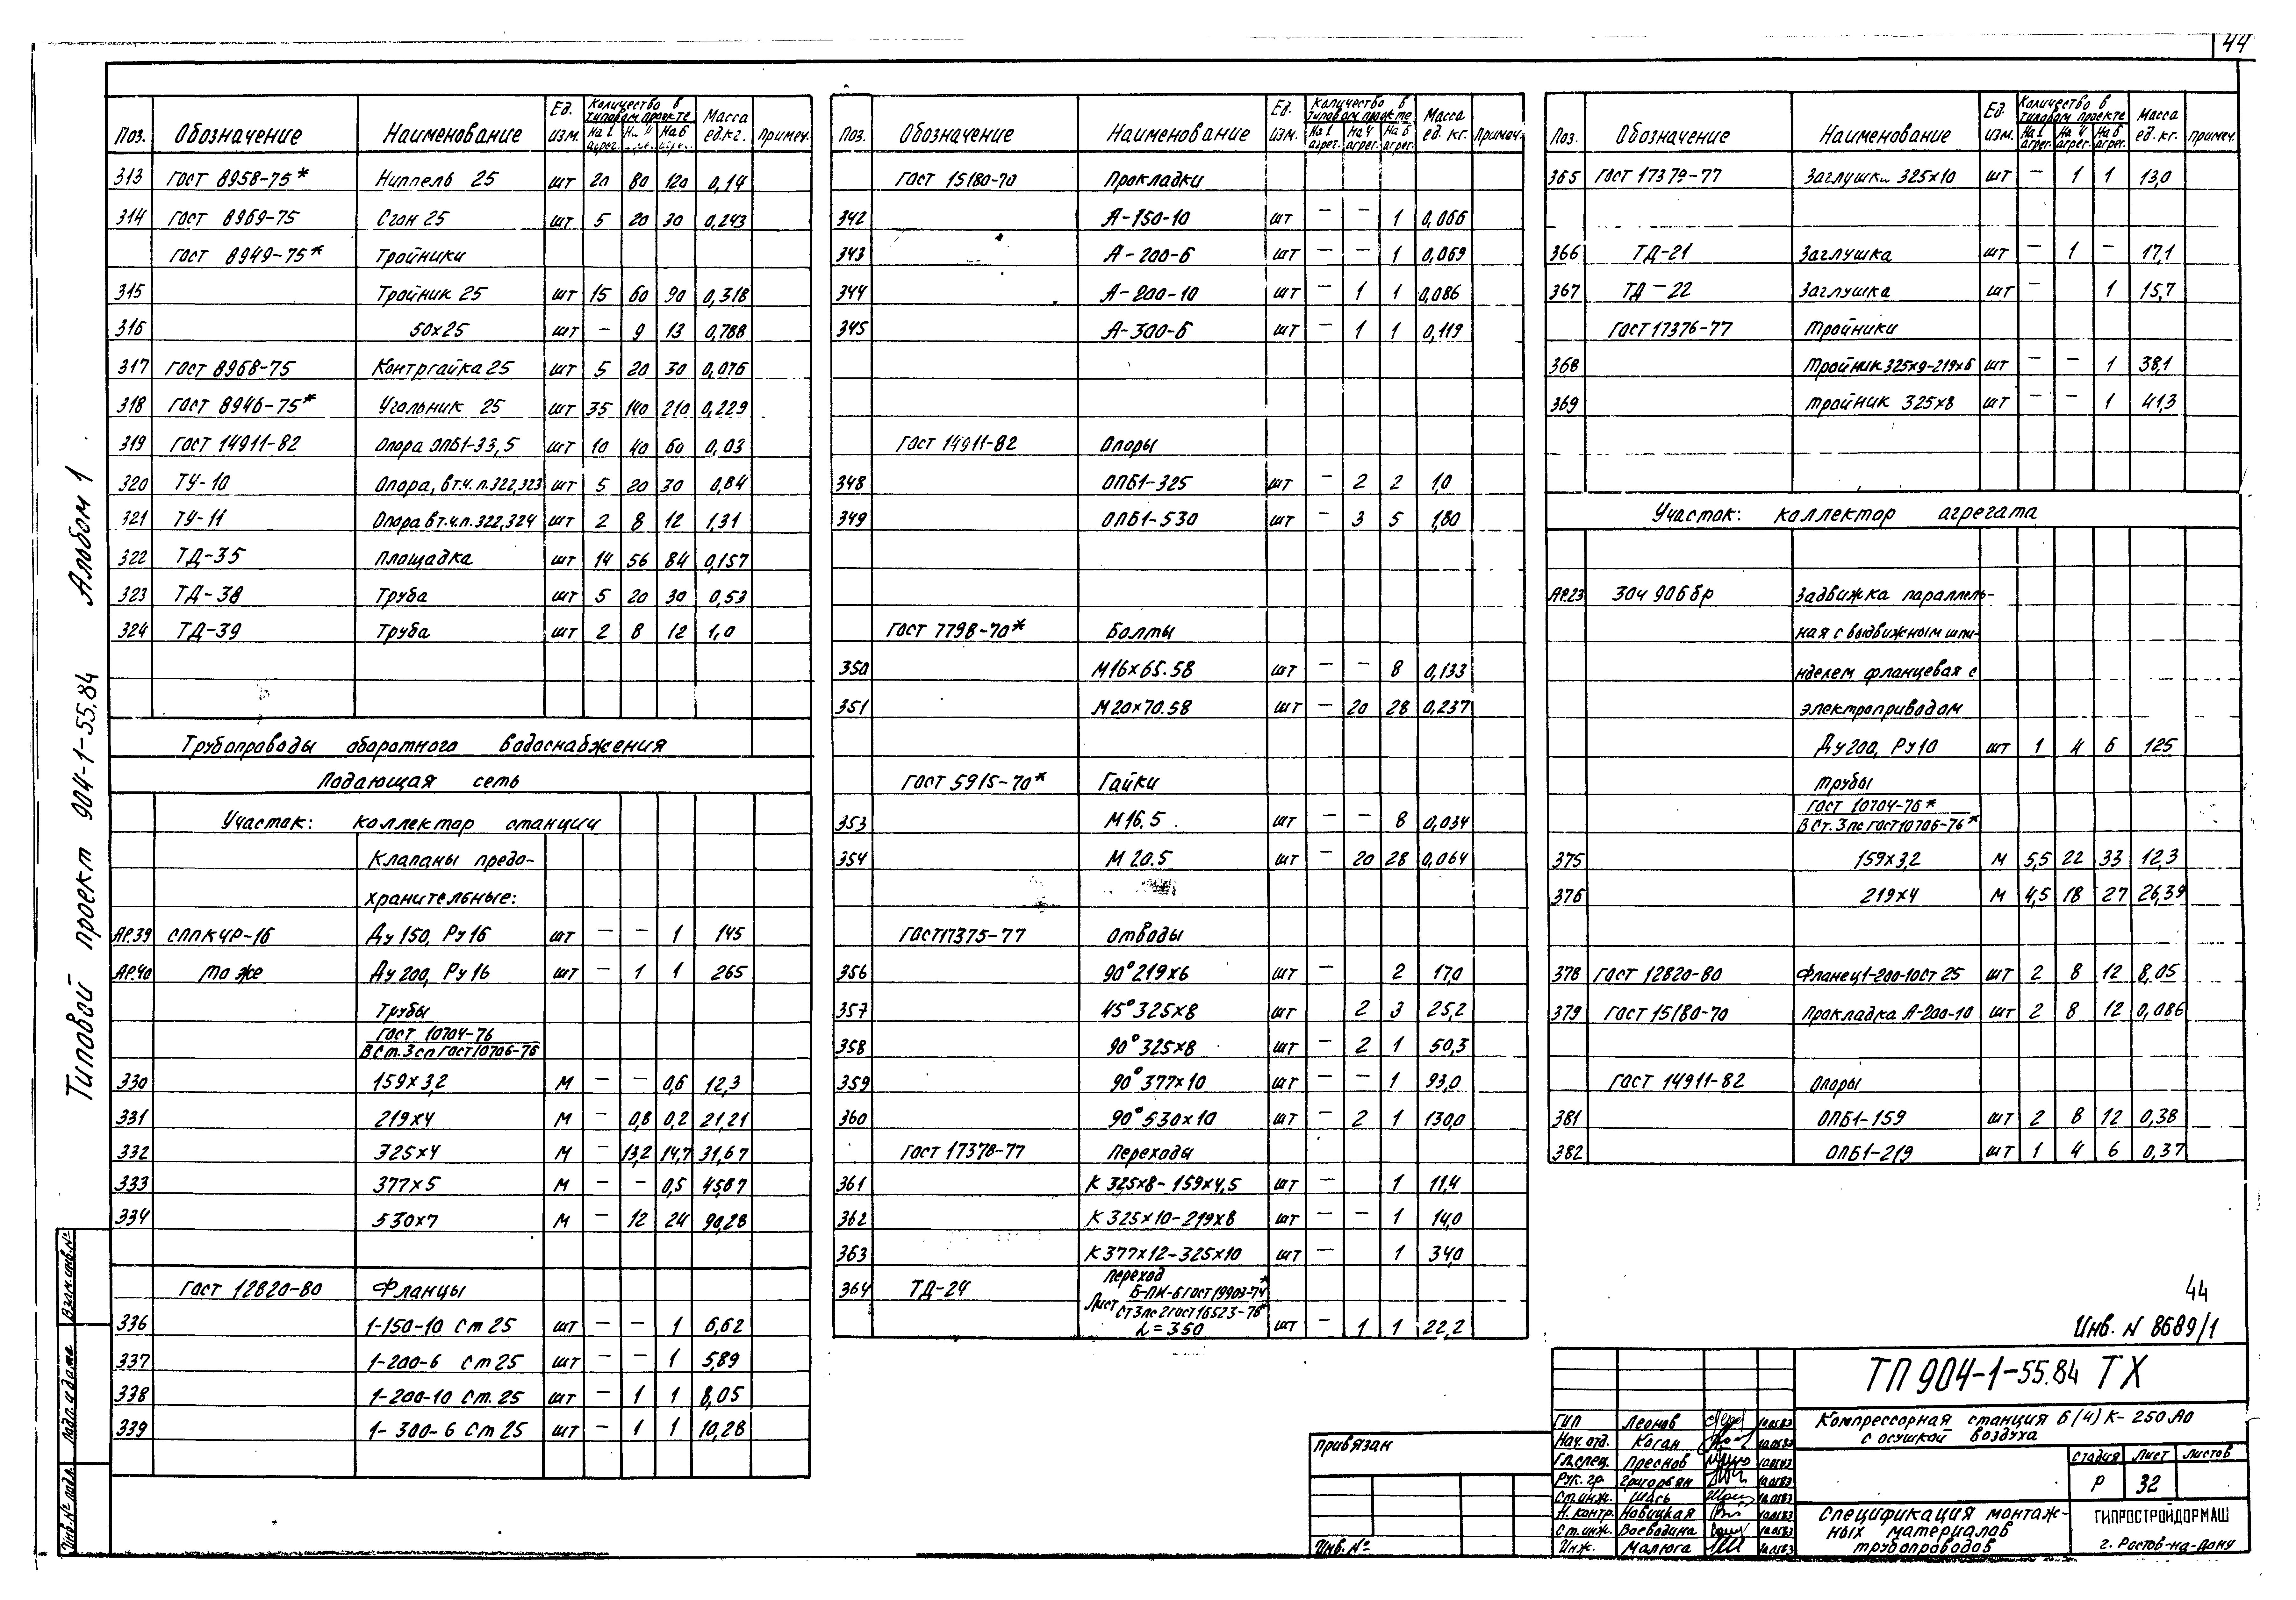 44
Типовой проект 904-1-55.84 Альбом 1
Поз. Обозначение Наименование Ед. изм. Количество в типовом проекте На 1 агрег. На 4 На 6 Масса ед.кг. Примеч.
313 ГОСТ 8958-75* Ниппель 25 шт 20 80 120 0,14
314 ГОСТ 8969-75 Сгон 25 шт 5 20 30 0,243
ГОСТ 8949-75* Тройники
315 Тройник 25 шт 15 60 90 0,318
316 50х25 шт — 9 13 0,788
317 ГОСТ 8968-75 Контргайка 25 шт 5 20 30 0,076
318 ГОСТ 8946-75* Угольник 25 шт 35 140 210 0,229
319 ГОСТ 14911-82 Опора ОПБ1-33,5 шт 10 40 60 0,03
320 ТУ-10 Опора, в т.ч. п.322,323 шт 5 20 30 0,84
321 ТУ-11 Опора в т.ч.п.322,324 шт 2 8 12 1,31
322 ТД-35 Площадка шт 14 56 84 0,157
323 ТД-38 Труба шт 5 20 30 0,53
324 ТД-39 Труба шт 2 8 12 1,0
Трубопроводы оборотного водоснабжения
Подающая сеть
Участок: коллектор станции
Клапаны предо-
хранительные:
АР.39 СППК4Р-16 Ду 150, Ру 16 шт — — 1 145
АР.40 то же Ду 200, Ру 16 шт — 1 1 265
Трубы
ГОСТ 10704-76
ВСт.3сп ГОСТ10706-76
330 159х3,2 М — — 0,6 12,3
331 219х4 М — 0,8 0,2 21,21
332 325х4 М — 13,2 14,7 31,67
333 377х5 М — — 0,5 45,87
334 530х7 М — 12 24 90,28
ГОСТ 12820-80 Фланцы
336 1-150-10 Ст 25 шт — — 1 6,62
337 1-200-6 Ст 25 шт — — 1 5,89
338 1-200-10 Ст. 25 шт — 1 1 8,05
339 1-300-6 Ст 25 шт — 1 1 10,28
Поз. Обозначение Наименование Ед. изм. Количество в типовом проекте На 1 агрег. На 4 агрег. На 6 агрег. Масса ед. кг. Примеч.
ГОСТ 15180-70 Прокладки
342 А-150-10 шт — — 1 0,066
343 А-200-6 шт — — 1 0,069
344 А-200-10 шт — 1 1 0,086
345 А-300-6 шт — 1 1 0,119
ГОСТ 14911-82 Опоры
348 ОПБ1-325 шт — 2 2 1,0
349 ОПБ1-530 шт — 3 5 1,80
ГОСТ 7798-70* Болты
350 М16х65.58 шт — — 8 0,133
351 М20х70.58 шт — 20 28 0,237
ГОСТ 5915-70* Гайки
353 М16.5 шт — — 8 0,034
354 М 20.5 шт — 20 28 0,064
ГОСТ17375-77 Отводы
356 90° 219х6 шт — 2 17,0
357 45° 325х8 шт 2 3 25,2
358 90° 325х8 шт — 2 1 50,3
359 90° 377х10 шт — — 1 93,0
360 90° 530х10 шт — 2 1 130,0
ГОСТ 17378-77 Переходы
361 К 325х8-159х4,5 шт — 1 11,4
362 К 325х10-219х8 шт — — 1 14,0
363 К 377х12-325х10 шт — 1 34,0
364 ТД-24 Переход
Лист Б-ПН-6 ГОСТ 19903-74*
Ст3пс2 ГОСТ 16523-76*
L=350 шт — 1 1 22,2
Поз. Обозначение Наименование Ед. изм. Количество в типовом проекте На 1 агрег. На 4 агрег. На 6 агрег. Масса ед. кг. Примеч.
365 ГОСТ 17379-77 Заглушки 325х10 шт — 1 1 13,0
366 ТД-21 Заглушка шт — 1 — 17,1
367 ТД-22 Заглушка шт — 1 15,7
ГОСТ17376-77 Тройники
368 Тройник 325х9-219х6 шт — — 1 38,1
369 Тройник 325х8 шт — — 1 41,3
Участок: коллектор агрегата
АР.23 30ч 906бр Задвижка параллель-
ная с выдвижным шпи-
нделем фланцевая с
электроприводом
Ду 200, Ру 10 шт 1 4 6 125
Трубы
ГОСТ 10704-76*
В Ст.3пс ГОСТ10706-76*
375 159х3,2 М 5,5 22 33 12,3
376 219х4 М 4,5 18 27 26,39
378 ГОСТ 12820-80 Фланец1-200-10Ст 25 шт 2 8 12 8,05
379 ГОСТ 15180-70 Прокладка А-200-10 шт 2 8 12 0,086
ГОСТ 14911-82 Опоры
381 ОПБ1-159 шт 2 8 12 0,38
382 ОПБ1-219 шт 1 4 6 0,37
44
Инв. N 8689/1
ТП 904-1-55.84 ТХ
Компрессорная станция 6(4)К-250А0
с осушкой воздуха
ГИП Леонов 10.05.83
Нач. отд. Коган 10.05.83
Гл.спец. Преснов 10.05.83
Рук. гр. Григорьян 10.05.83
Ст.инж. Шась 10.05.83
Н. контр. Новицкая 10.05.83
Ст.инж. Воеводина 10.05.83
Инж. Малюга 10.05.83
Стадия Лист Листов
Р 32
Спецификация монтаж-
ных материалов
трубопроводов
ГИПРОСТРОЙДОРМАШ
г. Ростов-на-Дону
Привязан
Инв. №
Взам.инв.№
Подп. и дата
Инв.№ подл.